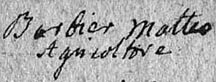 Barbier Matteo
Agricoltore